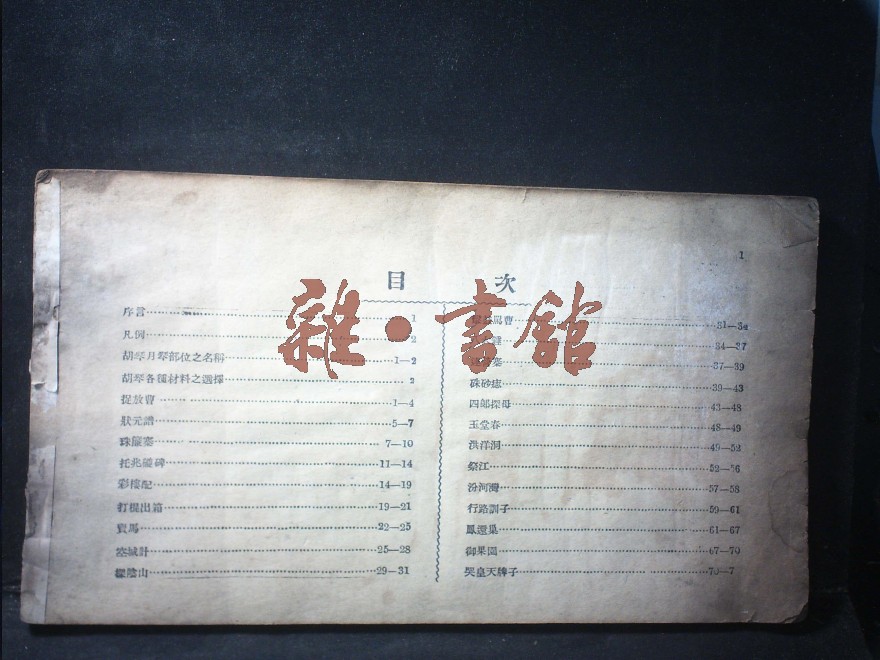 1
目 次
序言 1
凡例 2
胡琴月琴部位之名稱 1—2
胡琴各種材料之選擇 2
捉放曹 1—4
狀元譜 5—7
珠簾寨 7—10
托兆碰碑 11—14
彩樓配 14—19
打棍出箱 19—21
賣馬 22—25
空城計 25—28
探陰山 29—31
罵曹 31—34
34—37
寨 37—39
硃砂痣 39—43
四郎探母 43—48
玉堂春 48—49
洪洋洞 49—52
祭江 52—56
汾河灣 57—58
行路訓子 59—61
鳳還巢 61—67
御果園 67—70
哭皇天牌子 70—7
雜·書館